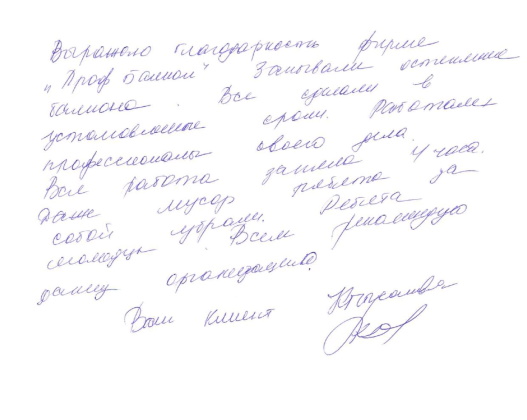 Выражаю благодарность фирме
"Проф Балкон" Заказывали остекление
балкона. Все сделали в
установленные сроки. Работали
профессионалы своего дела.
Вся работа заняла 4 часа.
Даже мусор ребята за
собой убрали. Ребята
молодцы. Всем рекомендую
данную организацию.
Ваш клиент